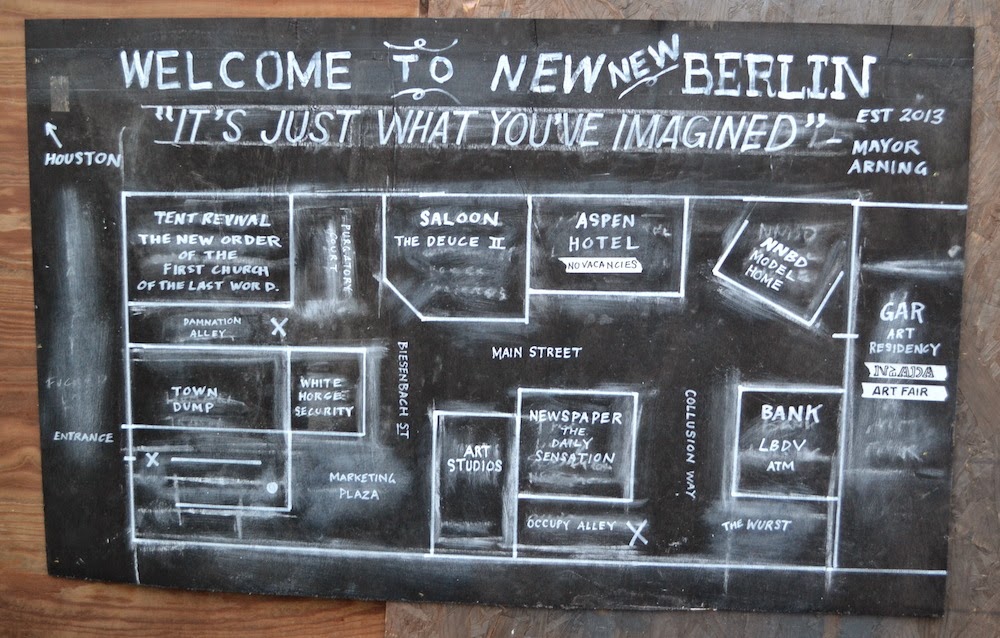 WELCOME TO NEW NEW BERLIN
"IT'S JUST WHAT YOU'VE IMAGINED"-
EST 2013
MAYOR
ARNING
HOUSTON
TENT REVIVAL
THE NEW ORDER
OF THE
FIRST CHURCH
OF THE LAST WORD.
PURGATORY
COURT
SALOON
THE DEUCE II
ASPEN
HOTEL
NO VACANCIES
NNBD
MODEL
HOME
GAR
ART
RESIDENCY
NADA
ART FAIR
DAMNATION
ALLEY
X
MAIN STREET
BIESENBACH ST
COLLUSION WAY
TOWN
DUMP
WHITE
HORGE
SECURITY
ENTRANCE
X
MARKETING
PLAZA
ART
STUDIOS
NEWSPAPER
THE
DAILY
SENSATION
OCCUPY ALLEY X
BANK
LBDV
ATM
THE WURST